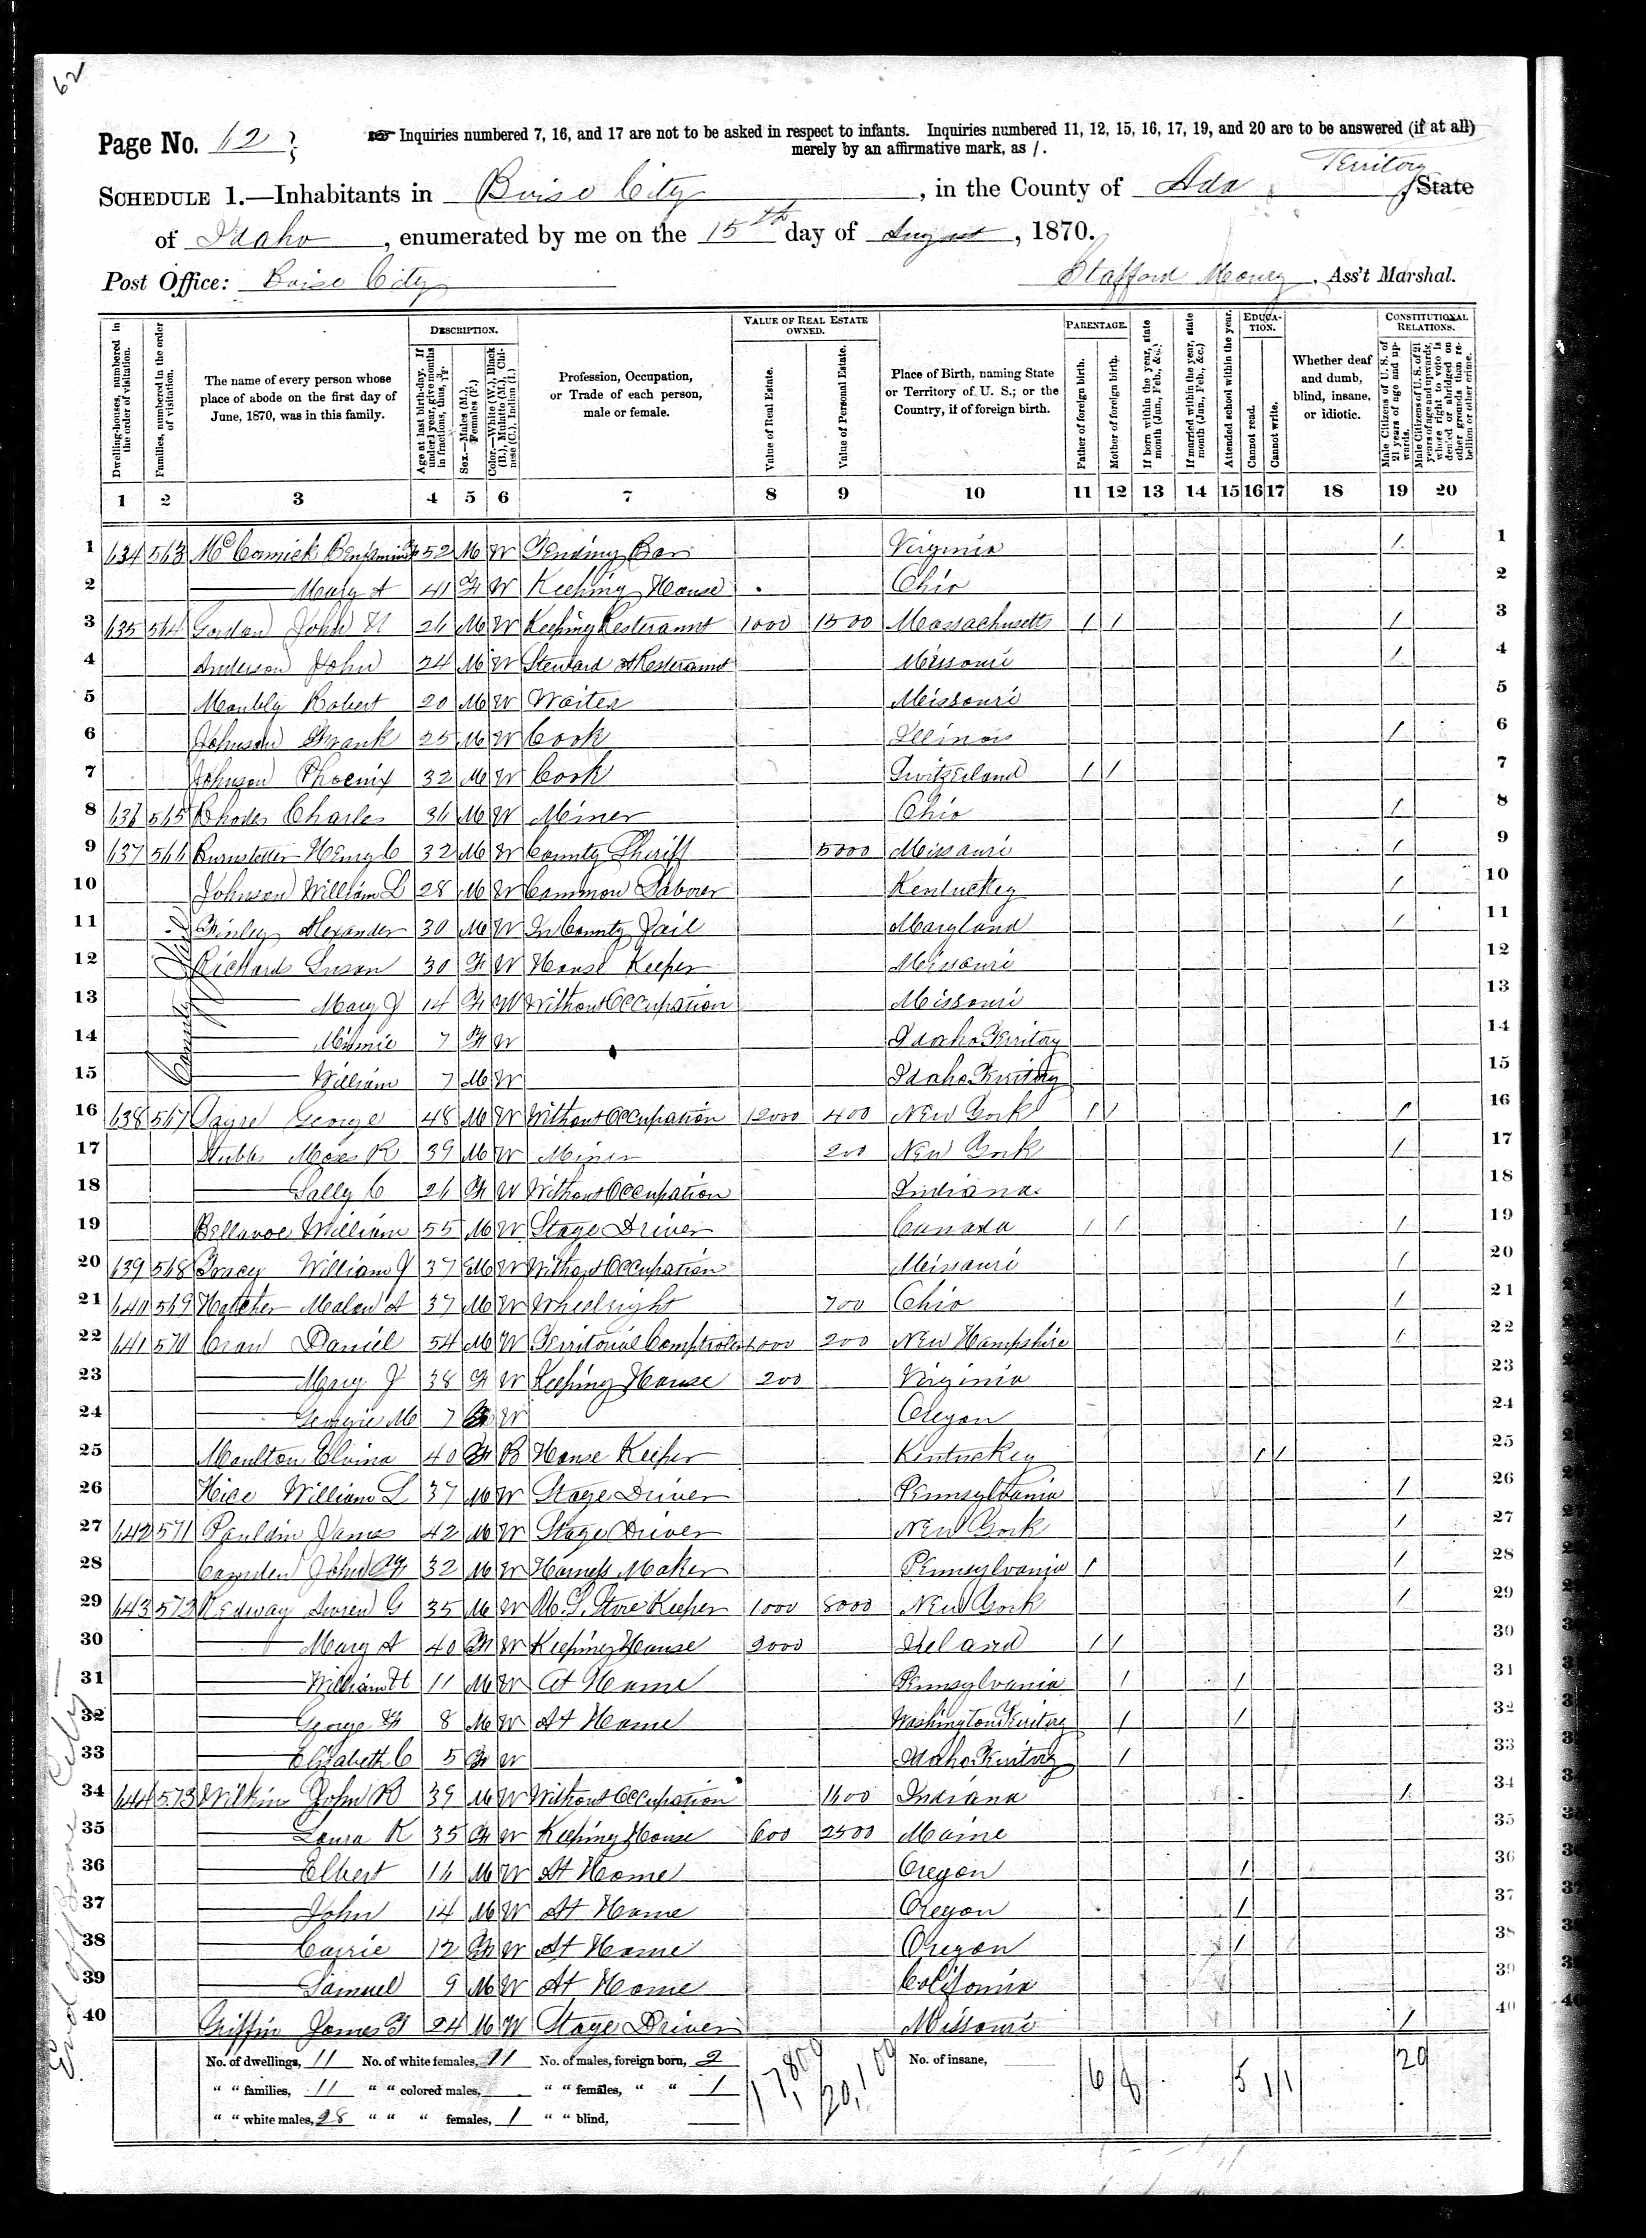 62
Page No. 62
Inquiries numbered 7, 16, and 17 are not to be asked in respect to infants. Inquiries numbered 11, 12, 15, 16, 17, 19, and 20 are to be answered (if at all)
merely by an affirmative mark, as /.
Territory
SCHEDULE 1.—Inhabitants in Boise City, in the County of Ada, State
of Idaho, enumerated by me on the 15th day of August, 1870.
Post Office: Boise City
Stafford Mowry, Ass't Marshal.
Dwelling-houses, numbered in the order of visitation.
Families, numbered in the order of visitation.
The name of every person whose place of abode on the first day of June, 1870, was in this family.
DESCRIPTION.
Age at last birth-day. If under 1 year, give months in fractions, thus, 3/12.
Sex.—Males (M.), Females (F.)
Color.—White (W.), Black (B.), Mulatto (M.), Chinese (C.), Indian (I.)
Profession, Occupation, or Trade of each person, male or female.
VALUE OF REAL ESTATE OWNED.
Value of Real Estate.
Value of Personal Estate.
Place of Birth, naming State or Territory of U. S.; or the Country, if of foreign birth.
PARENTAGE.
Father of foreign birth.
Mother of foreign birth.
If born within the year, state month (Jan., Feb., &c.)
If married within the year, state month (Jan., Feb., &c.)
Attended school within the year.
EDUCATION.
Cannot read.
Cannot write.
Whether deaf and dumb, blind, insane, or idiotic.
CONSTITUTIONAL RELATIONS.
Male Citizens of U. S. of 21 years of age and upwards.
Male Citizens of U. S. of 21 years of age and upwards, whose right to vote is denied or abridged on other grounds than rebellion or other crime.
1 2 3 4 5 6 7 8 9 10 11 12 13 14 15 16 17 18 19 20
1 634 563 McCormick Benjamin 52 M W Tending Bar Virginia / 1
2 Mary A 41 F W Keeping House Ohio 2
3 635 564 Gordon John H 26 M W Keeping Resteraunt 1000 1500 Massachusetts / / / 3
4 Anderson John 24 M W Steward at Resteraunt Missouri / 4
5 Robert 20 M W Waiter Missouri 5
6 Johnson Frank 25 M W Cook Illinois / 6
7 Johnson Phoenix 32 M W Cook Switzerland / / 7
8 636 565 Rhodes Charles 36 M W Miner Ohio / 8
9 637 566 Burnstetter Henry C 32 M W County Sheriff 5000 Missouri / 9
10 Johnson William L 28 M W Common Laborer Kentuckey / 10
11 Finley Alexander 30 M W In County Jail Maryland / 11
12 Richards Susan 30 F W House Keeper Missouri 12
13 Mary J 14 F W Without Occupation Missouri 13
14 Minnie 7 F W Idaho Territory 14
15 William 7 M W Idaho Territory 15
County Jail
16 638 567 George 48 M W Without Occupation 12000 400 New York / / / 16
17 Stubbs Moses R 39 M W Miner 200 New York / 17
18 Sally C 26 F W Without Occupation Indiana 18
19 William 55 M W Stage Driver Canada / / / 19
20 639 568 Tracy William J 37 M W Without Occupation Missouri / 20
21 640 569 Hatcher Malon A 37 M W Wheelright 700 Ohio / 21
22 641 570 Cram Daniel 54 M W Territorial Comptroler 1000 200 New Hampshire / 22
23 Mary J 38 F W Keeping House 200 Virginia 23
24 Georgie M 7 F W Oregon 24
25 Moulton Elvina 40 F B House Keeper Kentuckey / / 25
26 Hice William L 37 M W Stage Driver Pennsylvania / 26
27 642 571 Pauldin James 42 M W Stage Driver New York / 27
28 Camden John F 32 M W Harness Maker Pennsylvania / / 28
29 643 572 Redway Loren G 35 M W U. S. Store Keeper 1000 8000 New York / 29
30 Mary A 40 F W Keeping House 2000 Ireland / / 30
31 William H 11 M W At Home Pennsylvania / / 31
32 George F 8 M W At Home Washington Territory / / 32
33 Elizabeth C 5 F W Idaho Territory / 33
34 644 573 Wilkin John R 39 M W Without Occupation 1600 Indiana / 34
35 Laura K 35 F W Keeping House 600 2500 Maine 35
36 Elbert 16 M W At Home Oregon / 36
37 John 14 M W At Home Oregon / 37
38 Carrie 12 F W At Home Oregon / 38
39 Samuel 9 M W At Home California 39
40 Griffin James F 24 M W Stage Driver Missouri / 40
End of Boise City
No. of dwellings, 11 No. of white females, 11 No. of males, foreign born, 2 17,800 20,100 No. of insane, 6 8 5 1 1 29
" " families, 11 " " colored males, " " females, " " 1
" " white males, 28 " " " females, 1 " " blind,